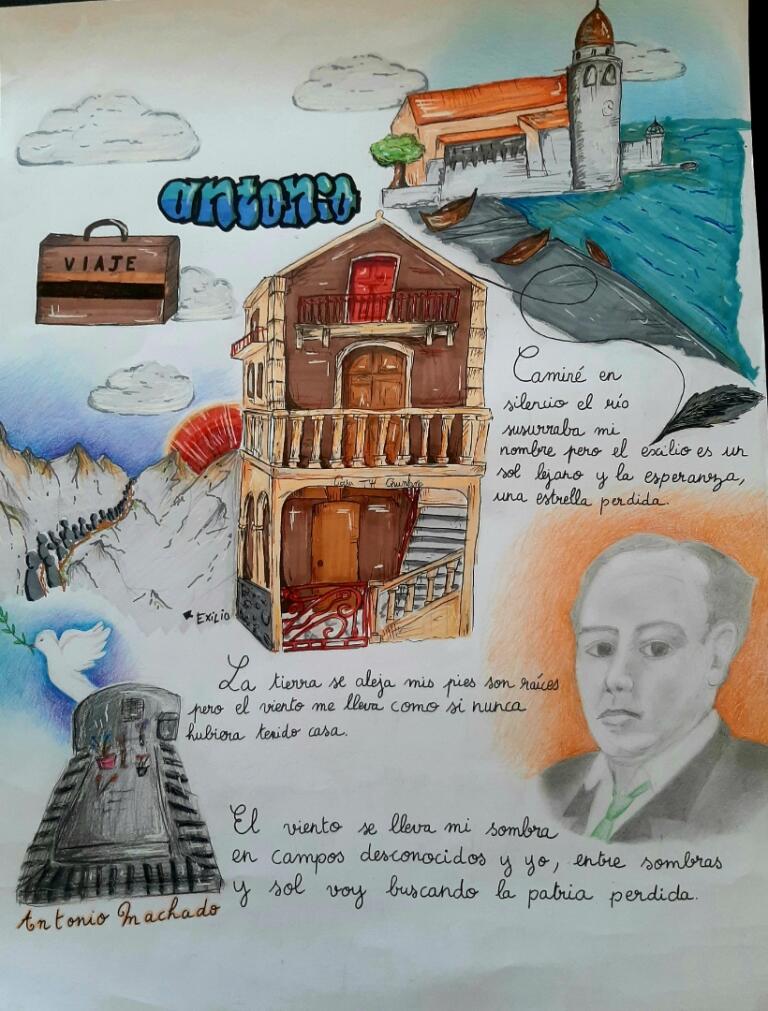 antonio
VIAJE
Camiré en
silencio el río
susurraba mi
nombre pero el exilio es un
sol lejano y la esperanza,
una estrella perdida.
EXILIO
La tierra se aleja mis pies son raíces
pero el viento me lleva como si nunca
hubiera tenido casa.
El viento se lleva mi sombra
en campos desconocidos y yo, entre sombras
y sol voy buscando la patria perdida.
Antonio Machado